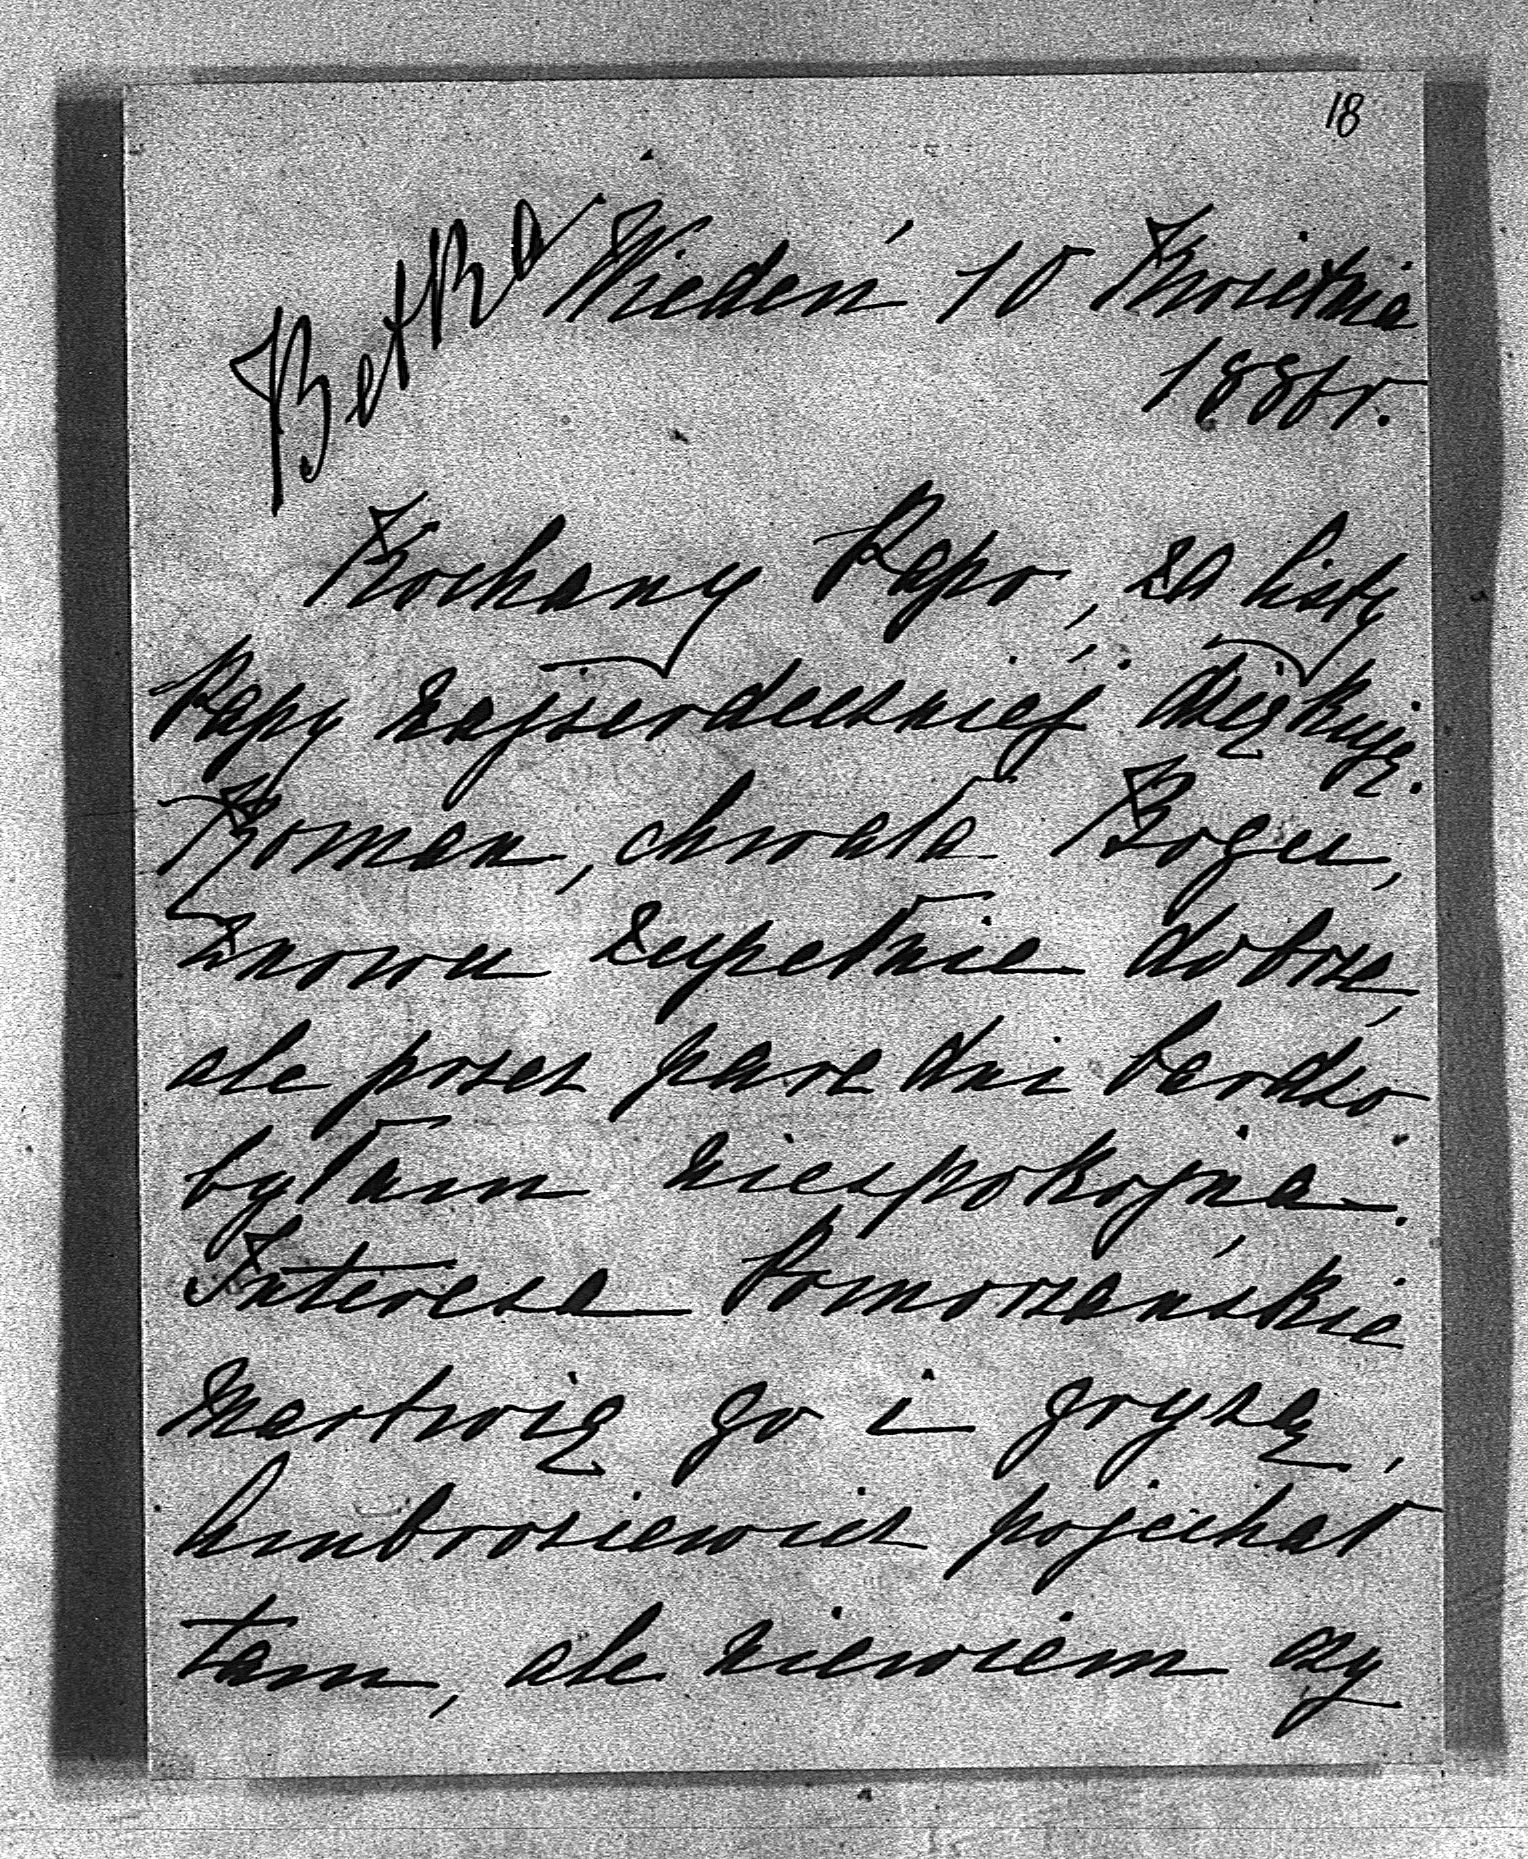 18
Betka Wiedeń 10 Kwietnia
1886 r.
Kochany Papo, za listy
Papy najserdeczniej dziękuję.
Roman, chwała Bogu,
znowu zupełnie dobrze,
ale przez parę dni bardzo
byłam niespokojna.
Interesa Pomorzańskie
martwią go i gryzą,
Ambroziewicz pojechał
tam, ale niewiem czy